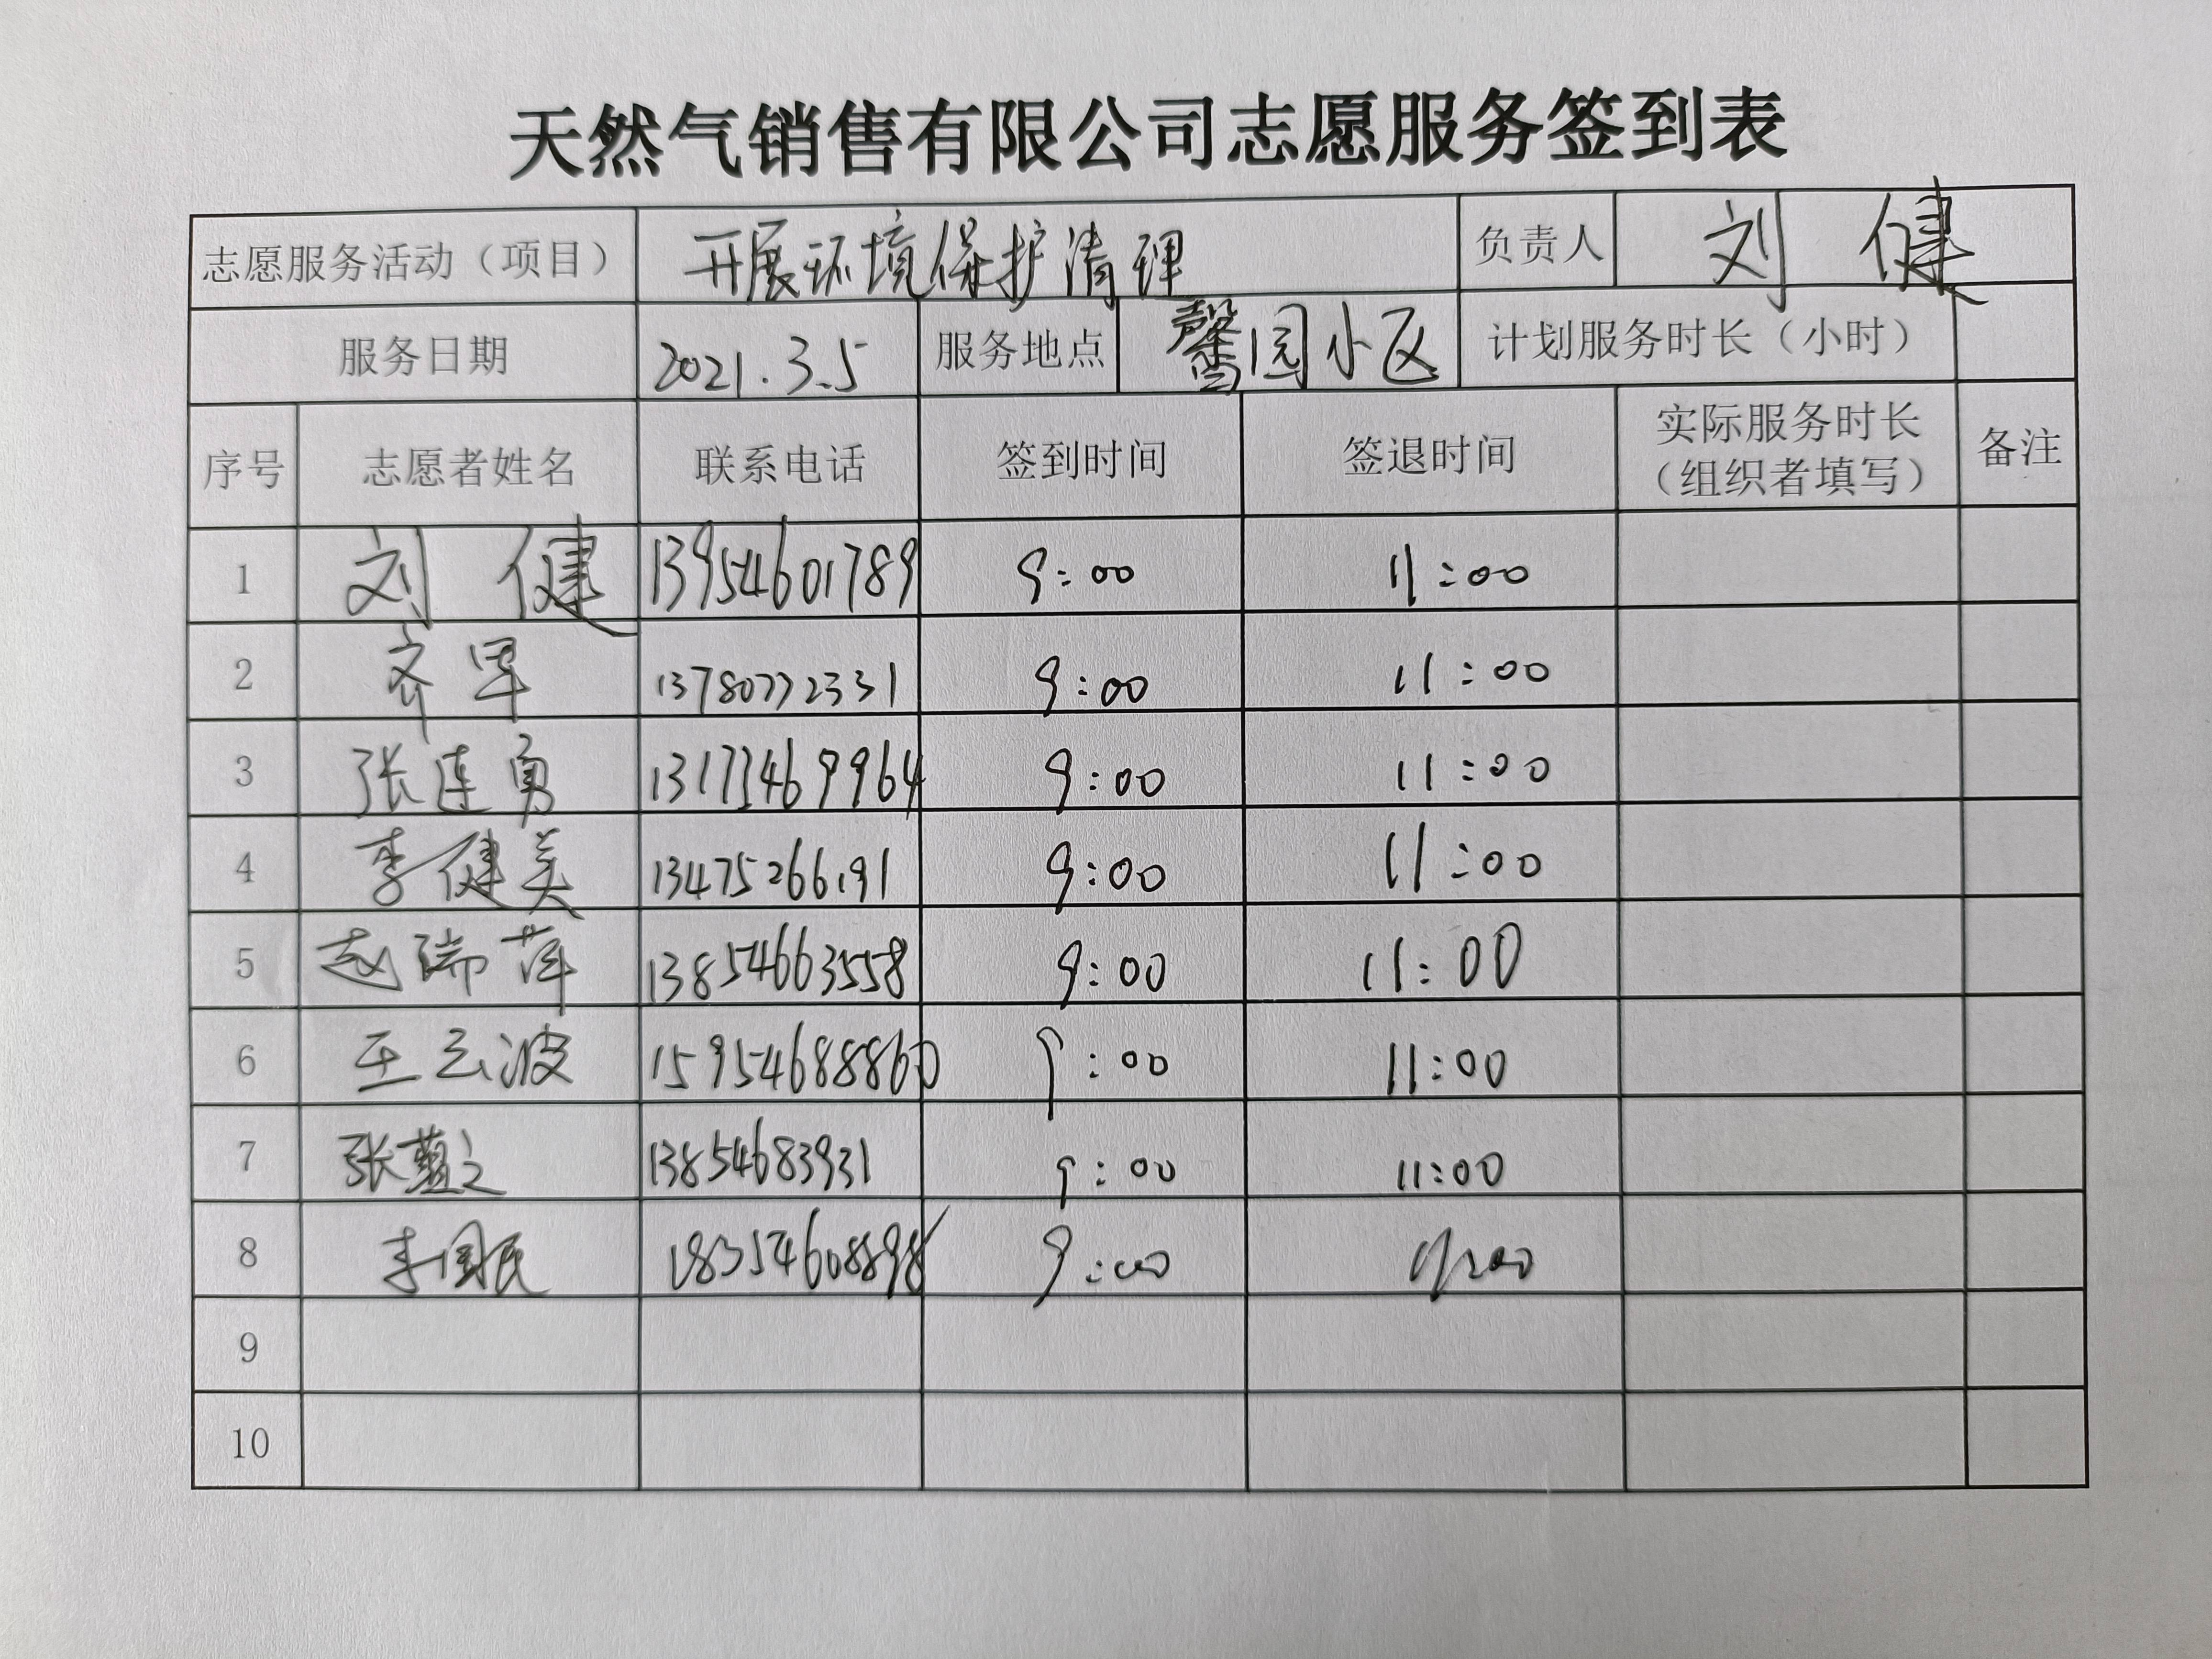 天然气销售有限公司志愿服务签到表
志愿服务活动（项目） 开展环境保护清理 负责人 刘健
服务日期 2021.3.5 服务地点 馨园小区 计划服务时长（小时）
序号 志愿者姓名 联系电话 签到时间 签退时间 实际服务时长（组织者填写） 备注
1 刘健 13954601789 9:00 11:00
2 齐军 13780772331 9:00 11:00
3 张连勇 13173469964 9:00 11:00
4 李健美 13475266191 9:00 11:00
5 赵瑞萍 13854663558 9:00 11:00
6 王云波 15954688860 9:00 11:00
7 张 之 13854683931 9:00 11:00
8 李国民 18354608898 9:00 11:00
9
10